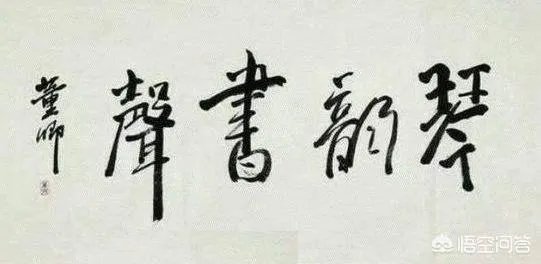 琴韵書聲
董卿
悟空问答